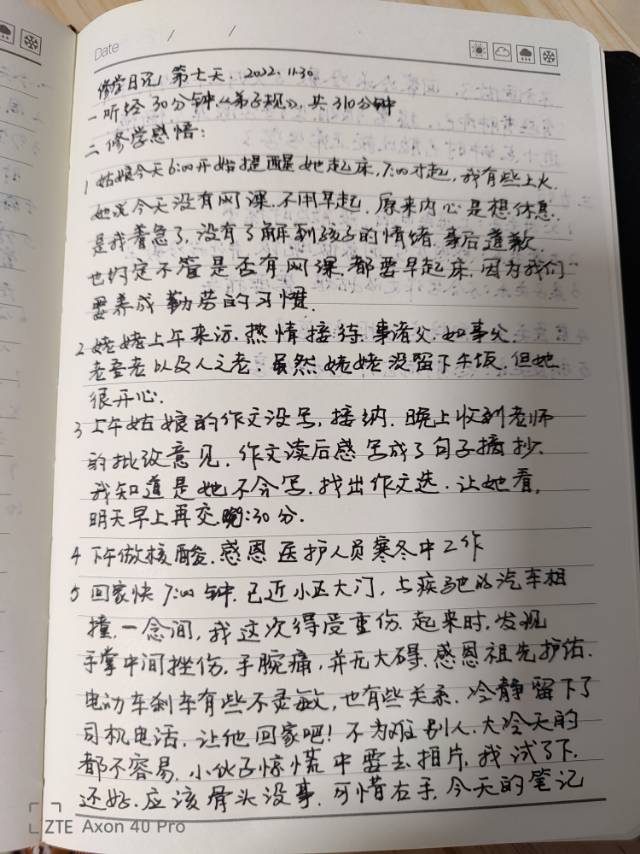 Date / /
修学日记 第七天. 2022. 11.30
一 听经 30分钟《弟子规》, 共310分钟
二 修学感悟:
1 姑娘今天6:00开始提醒她起床, 7:00才起, 我有些上火.
她说今天没有网课. 不用早起, 原来内心是想休息.
是我着急了, 没有了解到孩子的情绪. 事后道歉.
也约定不管是否有网课. 都要早起床. 因为我们
要养成勤劳的习惯.
2 姥姥上午来访. 热情接待. 事诸父, 如事父.
老吾老以及人之老. 虽然姥姥没留下午饭, 但她
很开心.
3 上午姑娘的作文没写, 接纳. 晚上收到老师
的批改意见. 作文读后感写成了句子摘抄.
我知道是她不会写. 找出作文选. 让她看,
明天早上再交 :30分.
4 下午做核酸. 感恩医护人员寒冬中工作
5 回家快7:00钟. 已近小区大门, 与疾驰的汽车相
撞. 一念间, 我这次得受重伤. 起来时, 发现
手掌中间挫伤. 手腕痛, 并无大碍. 感恩祖先护佑.
电动车刹车有些不灵敏, 也有些关系. 冷静留下了
司机电话. 让他回家吧! 不为难别人. 大冷天的
都不容易. 小伙子惊慌中要去拍片. 我试了下.
还好. 应该骨头没事. 可惜右手. 今天的笔记
ZTE Axon 40 Pro